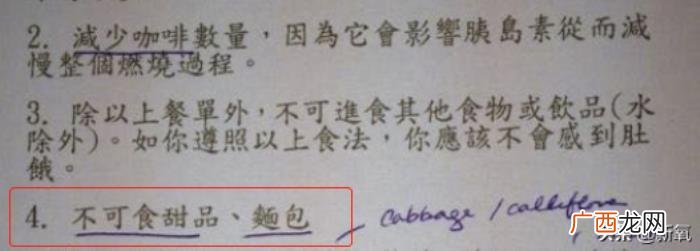 2. 減少咖啡數量，因為它會影響胰島素從而減
慢整個燃燒過程。
3. 除以上餐單外，不可進食其他食物或飲品(水
除外)。如你遵照以上食法，你應該不會感到肚
餓。
4. 不可食甜品、麵包 cabbage /
广西龙网